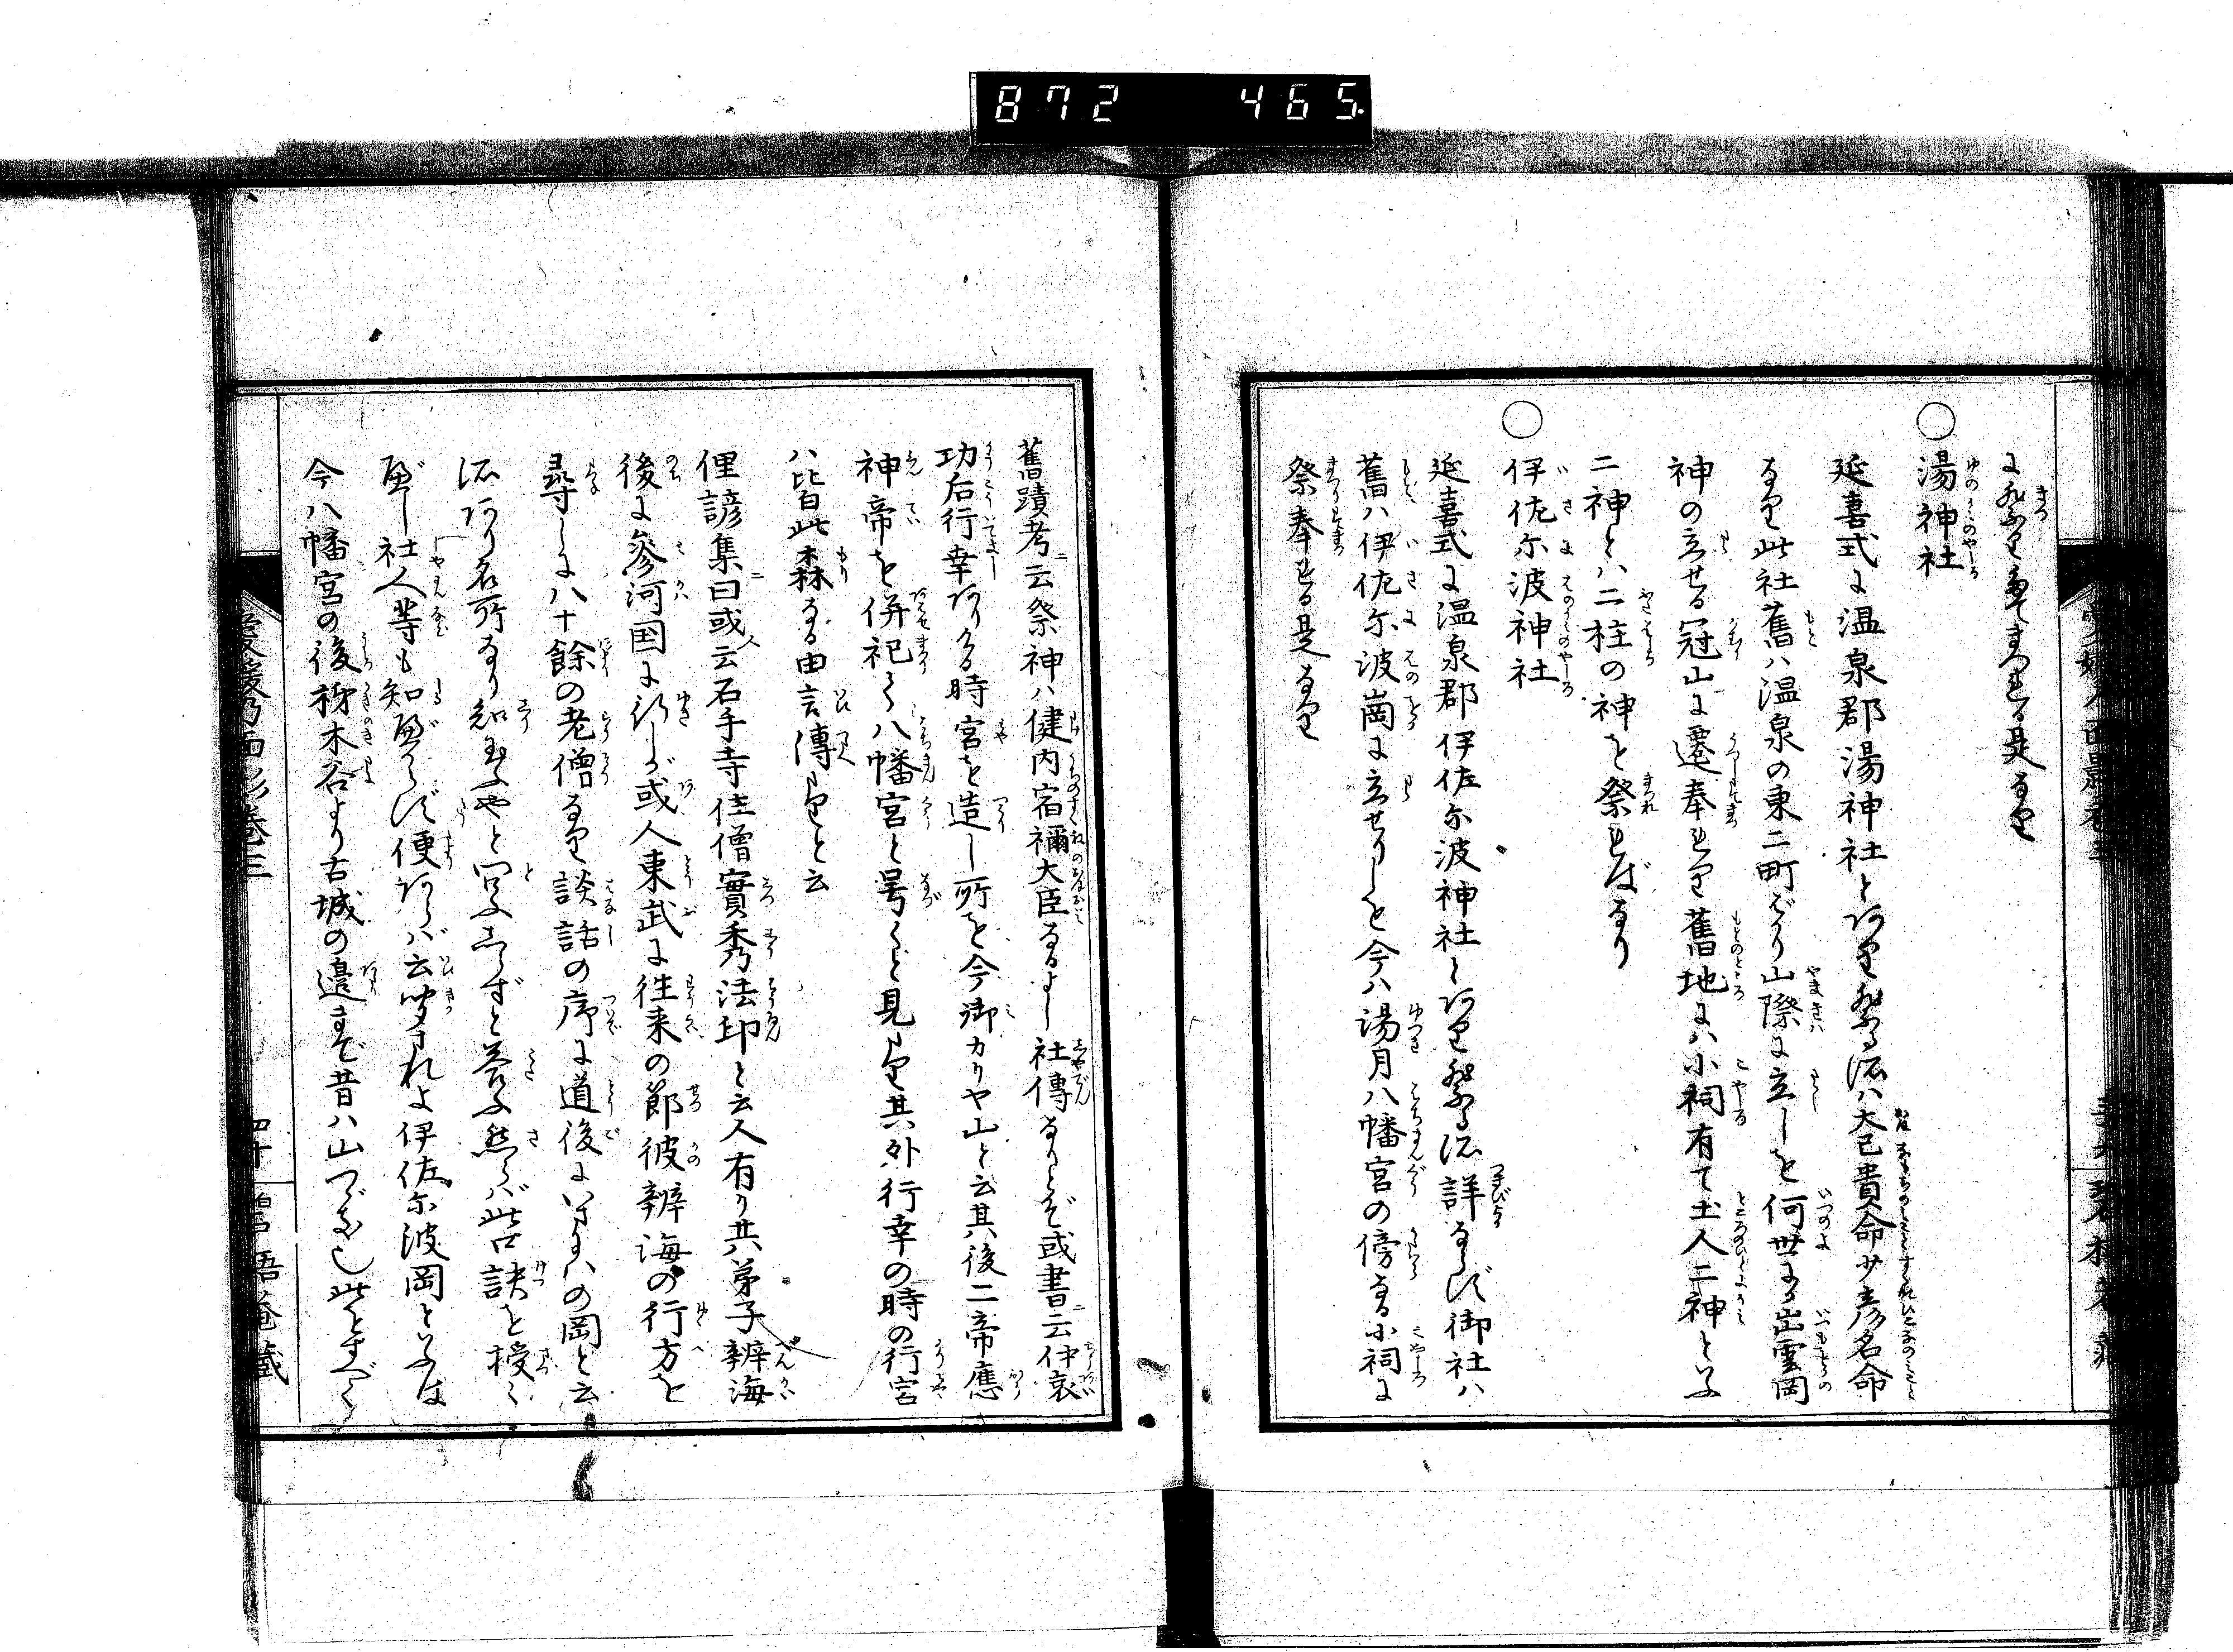 872 465
に祭りて奉まつれる是なり
湯神社
延喜式に温泉郡湯神社とあり祭る所ハ大己貴命少彦名命
なり此社舊ハ温泉の東二町ばかり山際に立しを何世にか出雲岡
神の立せる冠山に遷奉れり舊地にハ小祠有て土人二神といふ
二神とハ二柱の神を祭ればなり
伊佐尓波神社
延喜式に温泉郡伊佐尓波神社とあり祭る所詳ならず御社ハ
舊ハ伊佐尓波崗に立せりしを今ハ湯月八幡宮の傍なる小祠に
祭奉れる是なり
舊蹟考ニ云祭神ハ健内宿禰大臣なるよし社傳なりとぞ或書ニ云仲哀
功后行幸ありける時宮を造し所を今御カリヤ山と云其後二帝應
神帝を併祀て八幡宮と号くと見え其外行幸の時の行宮
ハ皆此森なる由言傳たりと云
俚諺集ニ曰或人云石手寺住僧實秀法印と云人有り其弟子辨海
後に參河国に行しが或人東武に往来の節彼辨海の行方を
尋しに八十餘の老僧なり談話の序に道後にいさにハの岡と云
所あり名所なり知玉ふやと問ふしらずと答ふ然らバ此口訣を授く
べし社人等も知べからず便あらバ云聞されよ伊佐尓波岡といふは
今八幡宮の後柳木谷より古城の邉まで昔ハ山つゞき也此をすべて
愛媛乃面影巻三
四十 碧梧菴藏